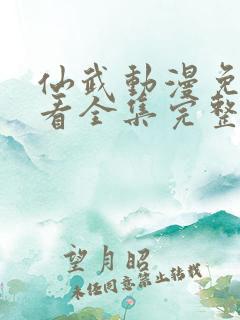 仙武動漫免
看全集完整
望月昭
未经同意禁止转载